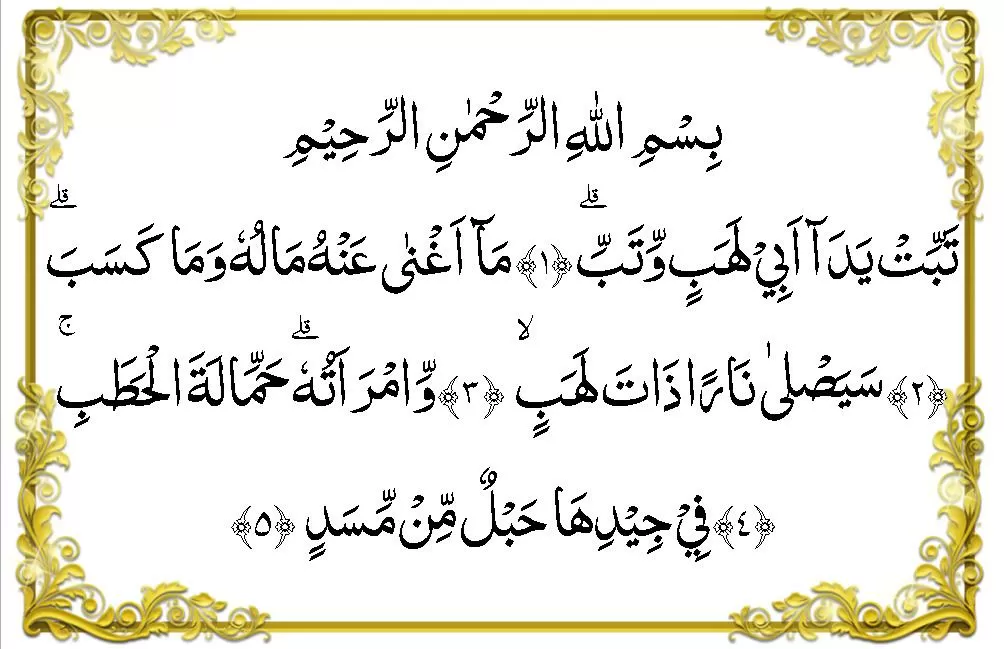 بِسْمِ اللّٰهِ الرَّحْمٰنِ الرَّحِيْمِ
تَبَّتْ يَدَآ اَبِيْ لَهَبٍ وَّتَبَّۗ ﴿١﴾ مَآ اَغْنٰى عَنْهُ مَالُهٗ وَمَا كَسَبَۗ
﴿٢﴾ سَيَصْلٰى نَارًا ذَاتَ لَهَبٍۙ ﴿٣﴾ وَّامْرَاَتُهٗۗ حَمَّالَةَ الْحَطَبِۚ
﴿٤﴾ فِيْ جِيْدِهَا حَبْلٌ مِّنْ مَّسَدٍ ﴿٥﴾